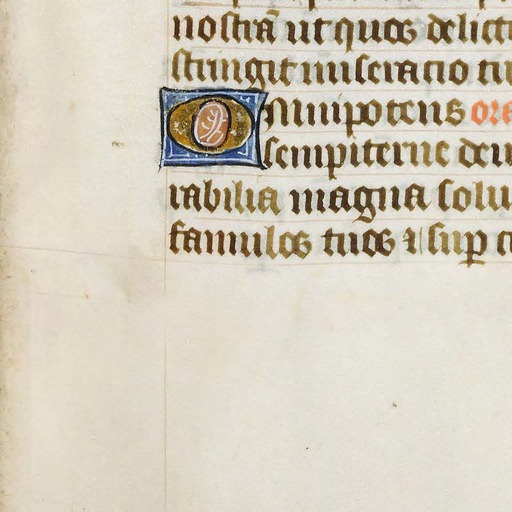 nostrā ut quos delict
stringit miseratio tu
Omnipotens ora
sempiterne deu
rabilia magna solu
famulos tuos ⁊ sup̱ c